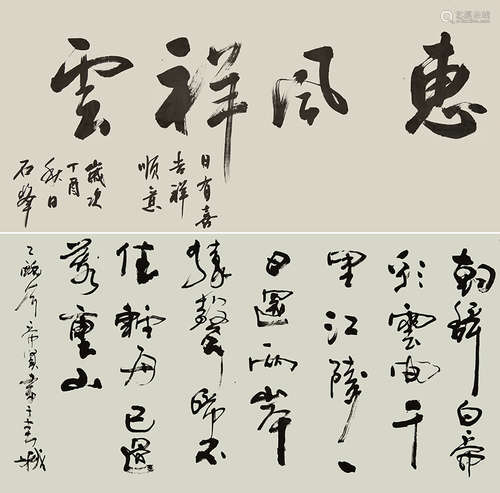 惠風祥雲
日有喜
吉祥
順意
歲次
丁酉
秋日
石峰
朝辭白帝
彩雲間千
里江陵一
日還兩岸
猿聲啼不
住輕舟已過
萬重山